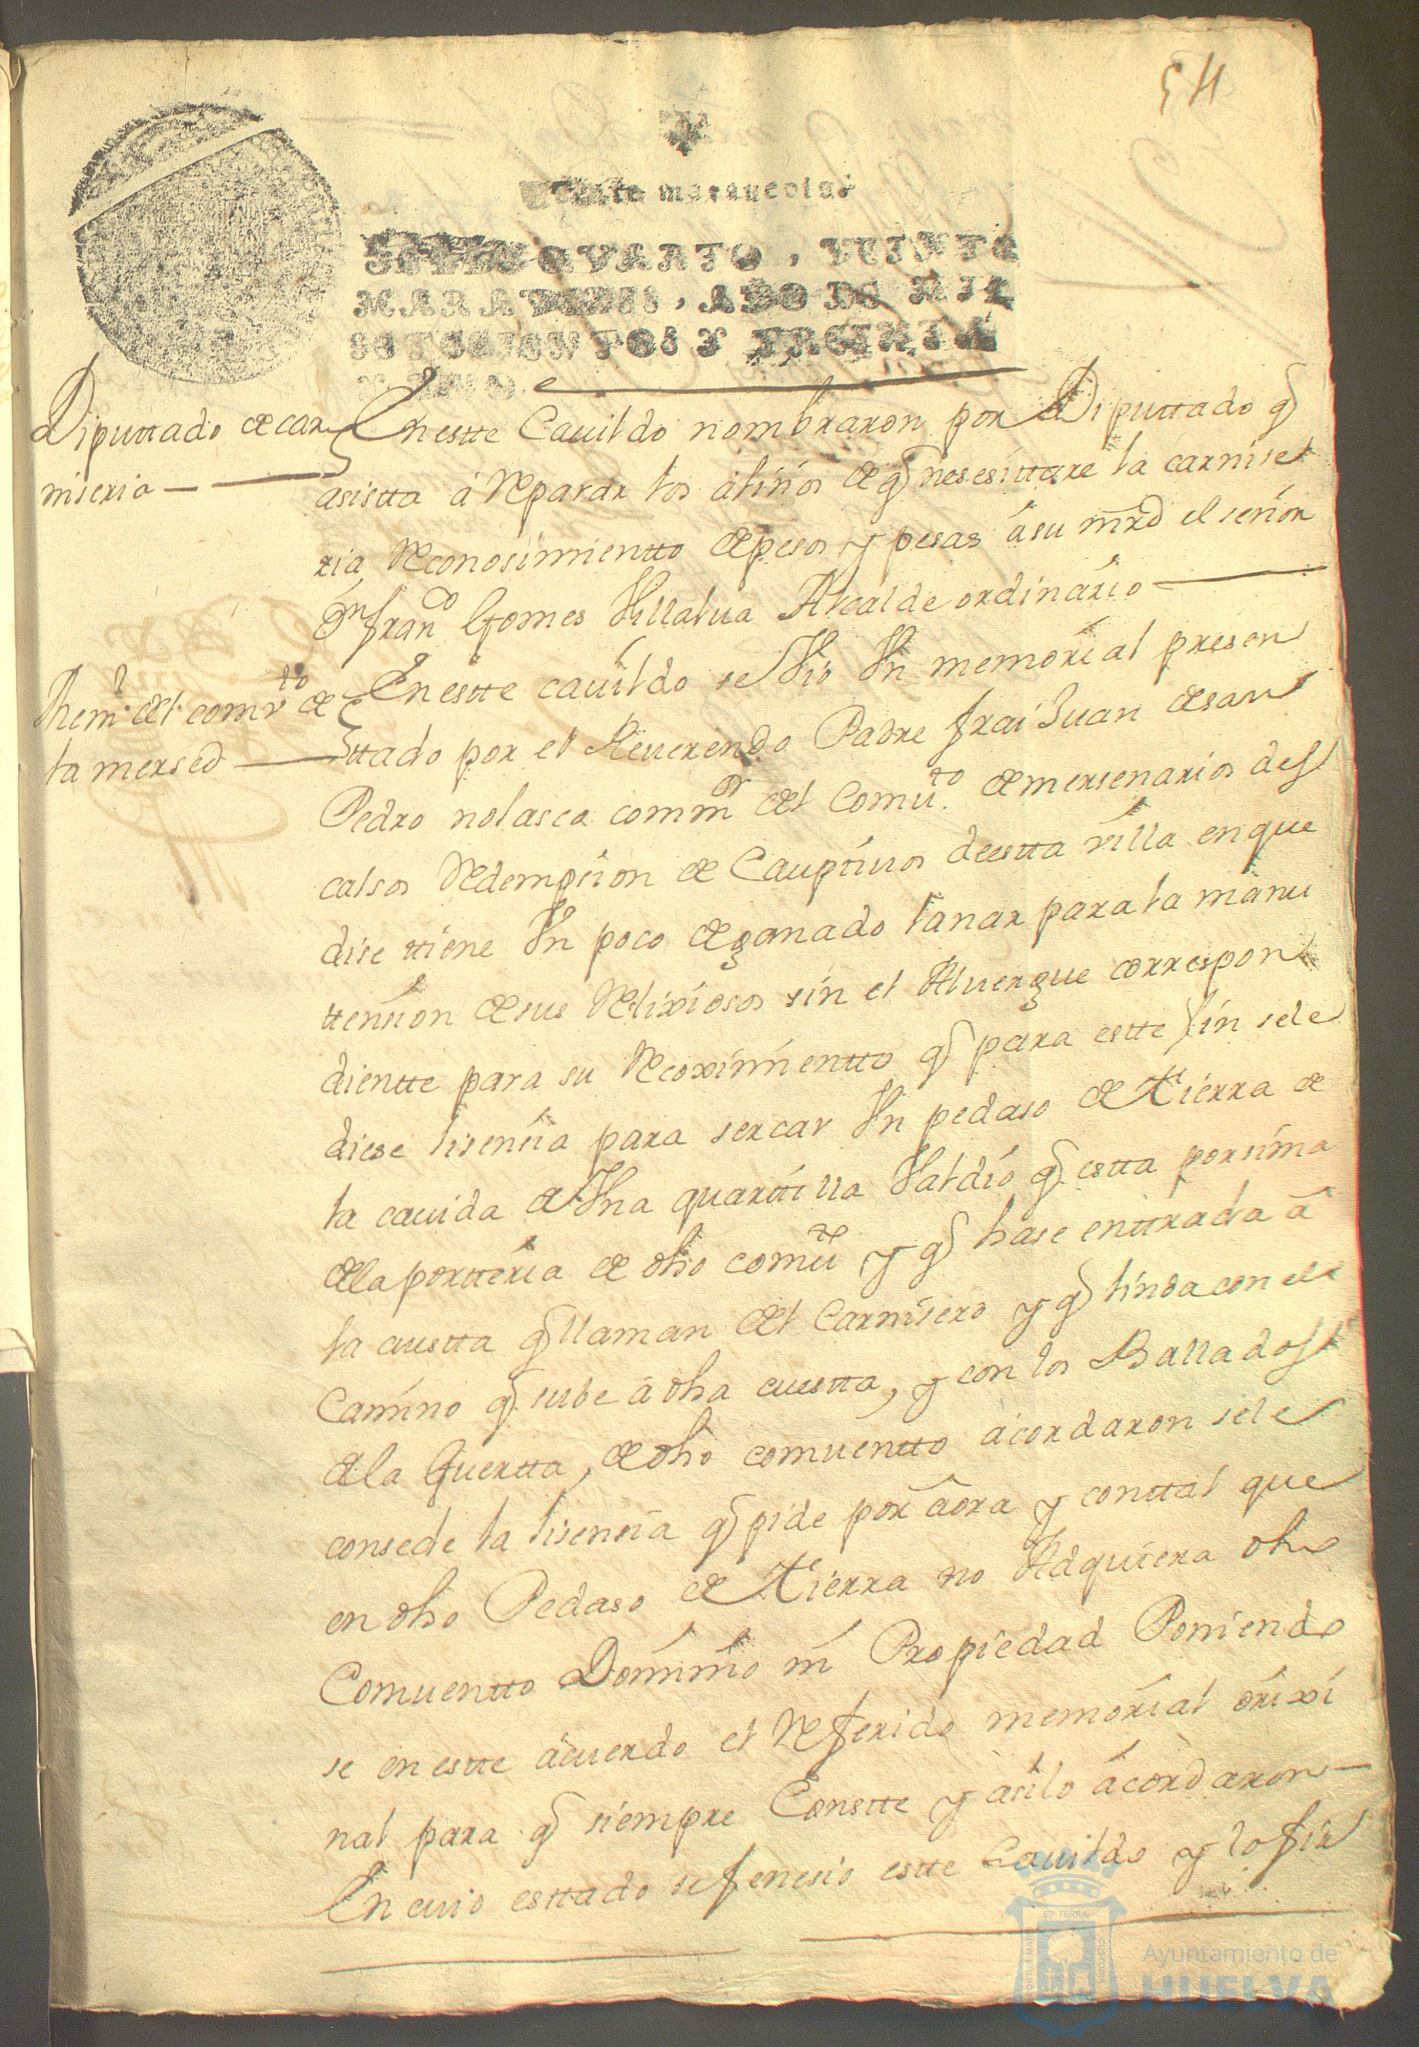 54
Veinte marauedis
SELLO QVARTO, VEINTE
MARAVEDIS, AÑO DE MIL
SETECIENTOS Y TREINTA
Y
Diputtado de car
niseria
En estte Cauildo nombraron por Diputtado q
asistta á Reparar los aliños de q nesesittare la carnise
ria Reconosimientto de pesos y pesas á su mrd el señor
Dn franco Gomes Villalua Alcalde ordinario
Mem.l del comv.to de
la mersed
En estte cauildo se Vio Vn memorial presen
ttado por el Reuerendo Padre frai Juan de san
Pedro nolasco commor del Comu.to de mersenarios des
calsos Redempsion de Cauptiuos de estta villa en que
dise ttiene Vn poco de ganado lanar para la manu
tension de sus Relixiosos sin el Aluergue correspon
dientte para su Recoximientto q para estte fin se le
diese lisensia para sercar Vn pedaso de tierra de
la cauida de Vna quarttilla Valdio q estta por sima
de la portteria de dho comuto y q hase enttrada á
la cuestta q llaman del Carnisero y q linda con el
Camino q sube á dha cuestta, y con los Ballados
de la Guertta, de dho comuentto acordaron se le
consede la lisensia q pide por aora y con ttal que
en dho Pedaso de tierra no Adquiera dho
Comuentto Dominio ni Propiedad Poniendo
se en estte acuerdo el Referido memorial orixi
nal para q siempre Constte y asi lo acordaron
En cuio esttado se fenesio estte Cauildo y lo fir
ET TERRAE
Ayuntamiento de
HUELVA